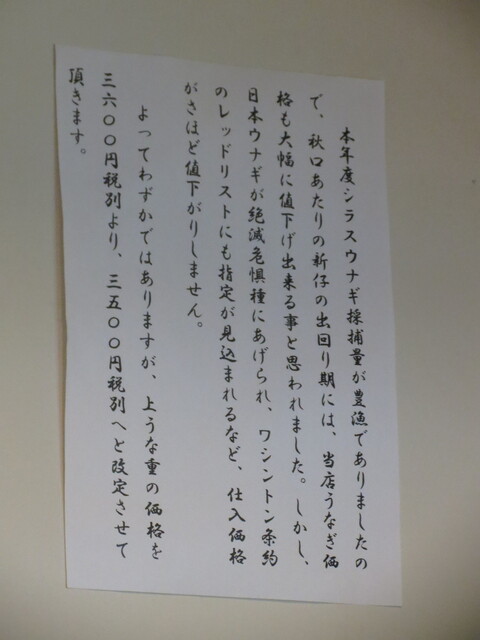 本年度シラスウナギ採捕量が豊漁でありましたの
で、秋口あたりの新仔の出回り期には、当店うなぎ価
格も大幅に値下げ出来る事と思われました。しかし、
日本ウナギが絶滅危惧種にあげられ、ワシントン条約
のレッドリストにも指定が見込まれるなど、仕入価格
がさほど値下がりしません。
よってわずかではありますが、上うな重の価格を
三六〇〇円税別より、三五〇〇円税別へと改定させて
頂きます。